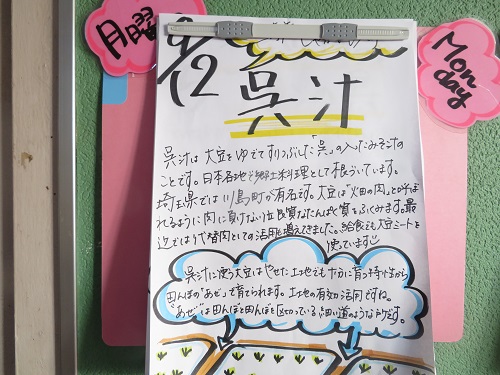 月曜
Monday
9/12
呉汁
呉汁は大豆をゆでてすりつぶした「呉」の入ったみそ汁の
ことです。日本各地で郷土料理として根づいています。
埼玉県では川島町が有名です。大豆は"畑の肉"とよば
れるように肉に負けない位良質なたんぱく質をふくみます。最
近では代替肉としての活用も増えてきました。給食も大豆ミートを
使っています
呉汁に使う大豆はやせた土地でも十分に育つ特性から
田んぼの"あぜ"で育てられます。土地の有効活用ですね。
"あぜ"は田んぼと田んぼを区切っている細い道のようなカ所です。